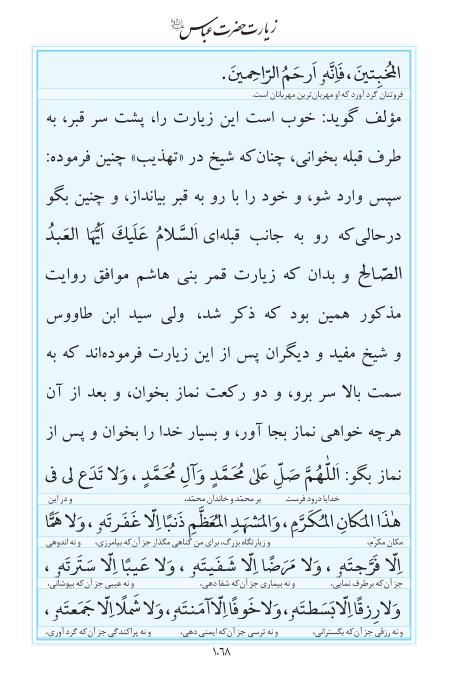 زیارت حضرت عباس
المُخبِتینَ، فَاِنَّهُ اَرحَمُ الرّاحِمینَ.
فروتنان گرد آورد که او مهربان‌ترین مهربانان است.
مؤلف گوید: خوب است این زیارت را، پشت سر قبر، به
طرف قبله بخوانی، چنان‌که شیخ در «تهذیب» چنین فرموده:
سپس وارد شو، و خود را با رو به قبر بیانداز، و چنین بگو
درحالی‌که رو به جانب قبله‌ای اَلسَّلامُ عَلَیكَ اَیُّهَا العَبدُ
الصّالِحُ و بدان که زیارت قمر بنی هاشم موافق روایت
مذکور همین بود که ذکر شد، ولی سید ابن طاووس
و شیخ مفید و دیگران پس از این زیارت فرموده‌اند که به
سمت بالا سر برو، و دو رکعت نماز بخوان، و بعد از آن
هرچه خواهی نماز بجا آور، و بسیار خدا را بخوان و پس از
نماز بگو: اَللّٰهُمَّ صَلِّ عَلیٰ مُحَمَّدٍ وَآلِ مُحَمَّدٍ، وَلا تَدَع لی فی
خدایا درود فرست بر محمّد و خاندان محمّد، و در این
هٰذَا المَکانِ المُکَرَّمِ، وَالمَشهَدِ المُعَظَّمِ ذَنبًا اِلّا غَفَرتَهُ، وَلا هَمًّا
مکان مکرّم، و زیارتگاه بزرگ، برای من گناهی مگذار جز آن‌که بیامرزی، و نه اندوهی
اِلّا فَرَّجتَهُ، وَلا مَرَضًا اِلّا شَفَیتَهُ، وَلا عَیبًا اِلّا سَتَرتَهُ،
جز آن‌که برطرف نمایی، و نه بیماری جز آن‌که شفا دهی، و نه عیبی جز آن‌که بپوشانی،
وَلا رِزقًا اِلّا بَسَطتَهُ، وَلا خَوفًا اِلّا آمَنتَهُ، وَلا شَملًا اِلّا جَمَعتَهُ،
و نه رزقی جز آن‌که بگسترانی، و نه ترسی جز آن‌که ایمنی دهی، و نه پراکندگی جز آن‌که گرد آوری،
۱۰۶۸